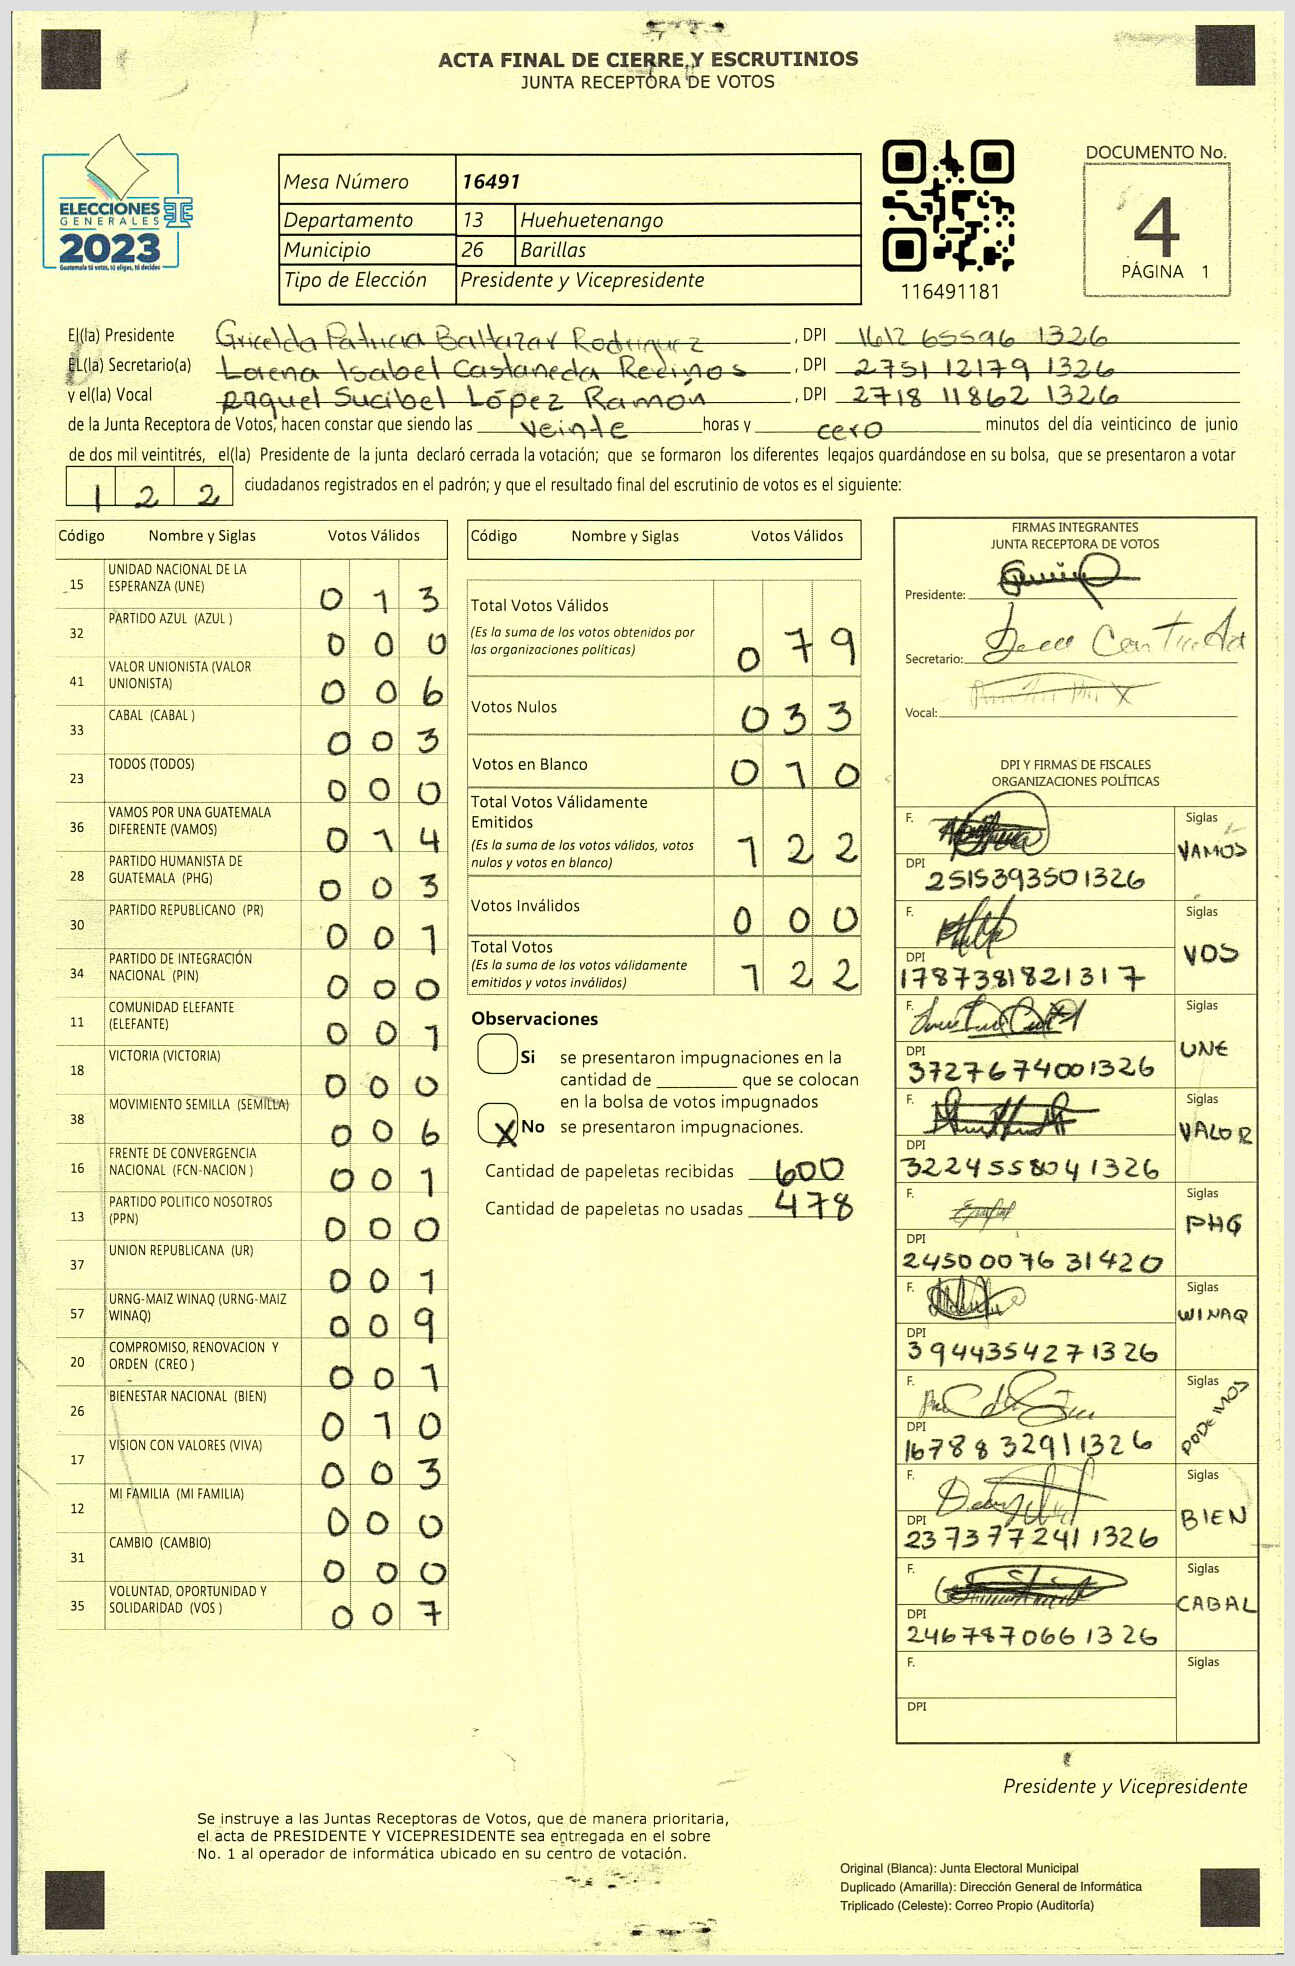 ACTA FINAL DE CIERRE Y ESCRUTINIOS
JUNTA RECEPTORA DE VOTOS
ELECCIONES
GENERALES
2023
Guatemala tú votas, tú eliges, tú decides
Mesa Número 16491
Departamento 13 Huehuetenango
Municipio 26 Barillas
Tipo de Elección Presidente y Vicepresidente
116491181
DOCUMENTO No.
4
PÁGINA 1
El(la) Presidente Gricelda Patricia Baltazar Rodriguez , DPI 1612 65596 1326
EL(la) Secretario(a) Lorena Isabel Castaneda Recinos , DPI 2751 12179 1326
y el(la) Vocal Raquel Sucibel López Ramón , DPI 2718 11862 1326
de la Junta Receptora de Votos, hacen constar que siendo las veinte horas y cero minutos del día veinticinco de junio
de dos mil veintitrés, el(la) Presidente de la junta declaró cerrada la votación; que se formaron los diferentes legajos guardándose en su bolsa, que se presentaron a votar
1 2 2 ciudadanos registrados en el padrón; y que el resultado final del escrutinio de votos es el siguiente:
Código Nombre y Siglas Votos Válidos
15 UNIDAD NACIONAL DE LA ESPERANZA (UNE) 0 1 3
32 PARTIDO AZUL (AZUL ) 0 0 0
41 VALOR UNIONISTA (VALOR UNIONISTA) 0 0 6
33 CABAL (CABAL ) 0 0 3
23 TODOS (TODOS) 0 0 0
36 VAMOS POR UNA GUATEMALA DIFERENTE (VAMOS) 0 1 4
28 PARTIDO HUMANISTA DE GUATEMALA (PHG) 0 0 3
30 PARTIDO REPUBLICANO (PR) 0 0 1
34 PARTIDO DE INTEGRACIÓN NACIONAL (PIN) 0 0 0
11 COMUNIDAD ELEFANTE (ELEFANTE) 0 0 1
18 VICTORIA (VICTORIA) 0 0 0
38 MOVIMIENTO SEMILLA (SEMILLA) 0 0 6
16 FRENTE DE CONVERGENCIA NACIONAL (FCN-NACION ) 0 0 1
13 PARTIDO POLITICO NOSOTROS (PPN) 0 0 0
37 UNION REPUBLICANA (UR) 0 0 1
57 URNG-MAIZ WINAQ (URNG-MAIZ WINAQ) 0 0 9
20 COMPROMISO, RENOVACION Y ORDEN (CREO ) 0 0 1
26 BIENESTAR NACIONAL (BIEN) 0 1 0
17 VISION CON VALORES (VIVA) 0 0 3
12 MI FAMILIA (MI FAMILIA) 0 0 0
31 CAMBIO (CAMBIO) 0 0 0
35 VOLUNTAD, OPORTUNIDAD Y SOLIDARIDAD (VOS ) 0 0 7
Código Nombre y Siglas Votos Válidos
Total Votos Válidos 0 7 9
(Es la suma de los votos obtenidos por
las organizaciones políticas)
Votos Nulos 0 3 3
Votos en Blanco 0 1 0
Total Votos Válidamente
Emitidos 1 2 2
(Es la suma de los votos válidos, votos
nulos y votos en blanco)
Votos Inválidos 0 0 0
Total Votos 1 2 2
(Es la suma de los votos válidamente
emitidos y votos inválidos)
Observaciones
Si se presentaron impugnaciones en la
cantidad de ________ que se colocan
en la bolsa de votos impugnados
X No se presentaron impugnaciones.
Cantidad de papeletas recibidas 600
Cantidad de papeletas no usadas 478
FIRMAS INTEGRANTES
JUNTA RECEPTORA DE VOTOS
Presidente:
Secretario:
Vocal:
DPI Y FIRMAS DE FISCALES
ORGANIZACIONES POLÍTICAS
F. Siglas VAMOS
DPI 2515393501326
F. Siglas VOS
DPI 1787381821317
F. Siglas UNE
DPI 3727674001326
F. Siglas VALOR
DPI 3224558041326
F. Siglas PHG
DPI 2450007631420
F. Siglas WINAQ
DPI 3944354271326
F. Siglas PODEMOS
DPI 1678832911326
F. Siglas BIEN
DPI 2373772411326
F. Siglas CABAL
DPI 2467870661326
F. Siglas
DPI
Presidente y Vicepresidente
Se instruye a las Juntas Receptoras de Votos, que de manera prioritaria,
el acta de PRESIDENTE Y VICEPRESIDENTE sea entregada en el sobre
No. 1 al operador de informática ubicado en su centro de votación.
Original (Blanca): Junta Electoral Municipal
Duplicado (Amarilla): Dirección General de Informática
Triplicado (Celeste): Correo Propio (Auditoría)